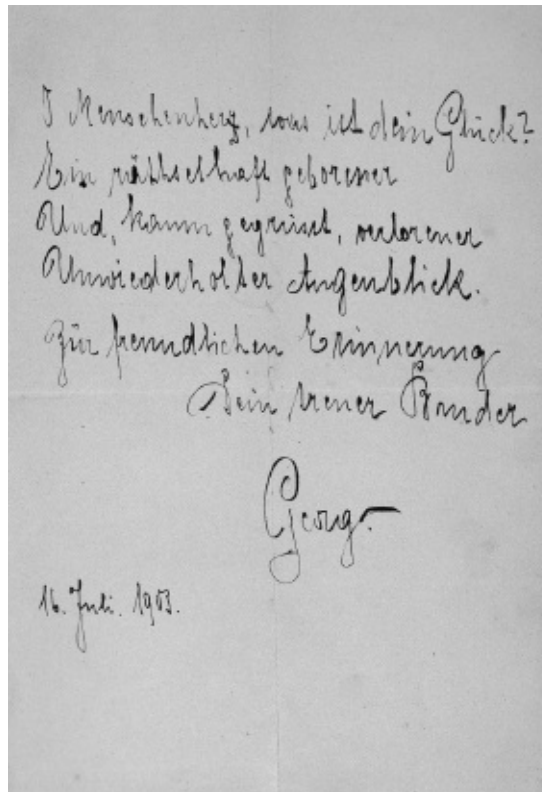 O Menschenherz, was ist dein Glück?
Ein räthselhaft geborener
Und, kaum gegrüsst, verlorener
Unwiederholter Augenblick.
Zur freundlichen Erinnerung
Dein treuer Bruder
Georg.
16. Juli. 1903.